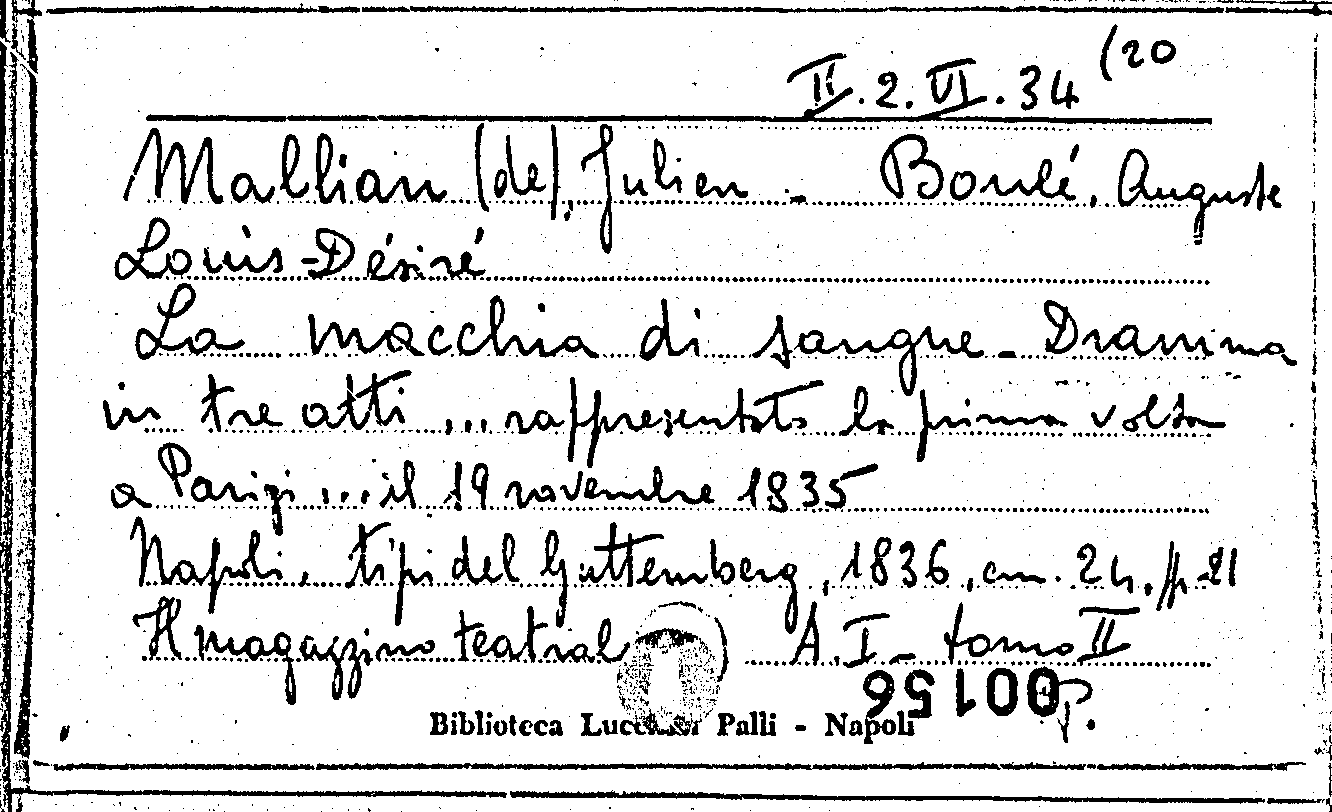 II.2.VI.34 (20
Mallian (de), Julien - Boulé, Auguste
Louis-Désiré
La macchia di sangue - Dramma
in tre atti ... rappresentato la prima volta
a Parigi ... il 19 novembre 1835
Napoli, tipi del Guttemberg, 1836, cm. 24, pp. 21
Il magazzino teatral ) A. I - tomo II
00156
Biblioteca Lucchesi Palli - Napoli